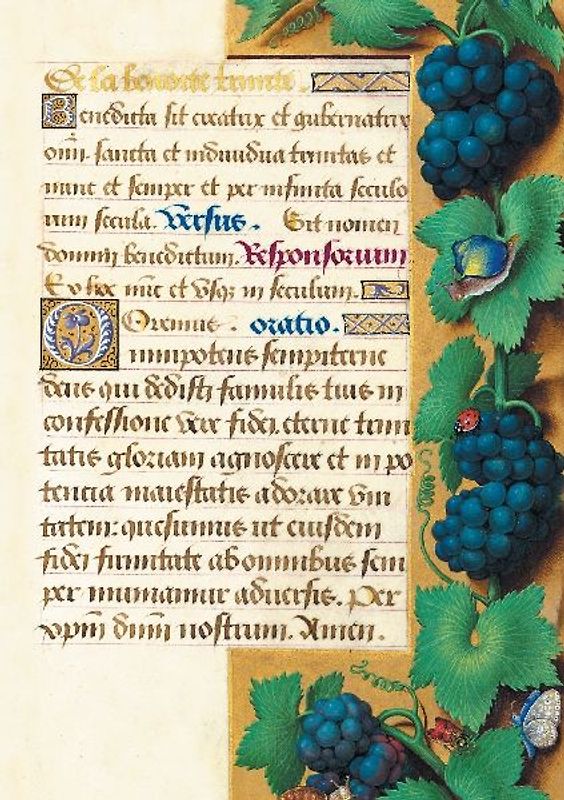 De la benoite trinite.
Benedicta sit creatrix et gubernatrix
omniū sancta et indiuidua trinitas et
nunc et semper et per infinita seculo
rum secula. Versus. Sit nomen
domini benedictum. Responsorium
Ex hoc nūc et vsq; in seculum.
Oremus. oratio.
Omnipotens sempiterne
deus qui dedisti famulis tuis in
confessione vere fidei eterne trini
tatis gloriam agnoscere et in po
tencia maiestatis adorare vni
tatem: quesumus ut eiusdem
fidei firmitate ab omnibus sem
per muniamur aduersis. Per
xp̄m dn̄m nostrum. Amen.